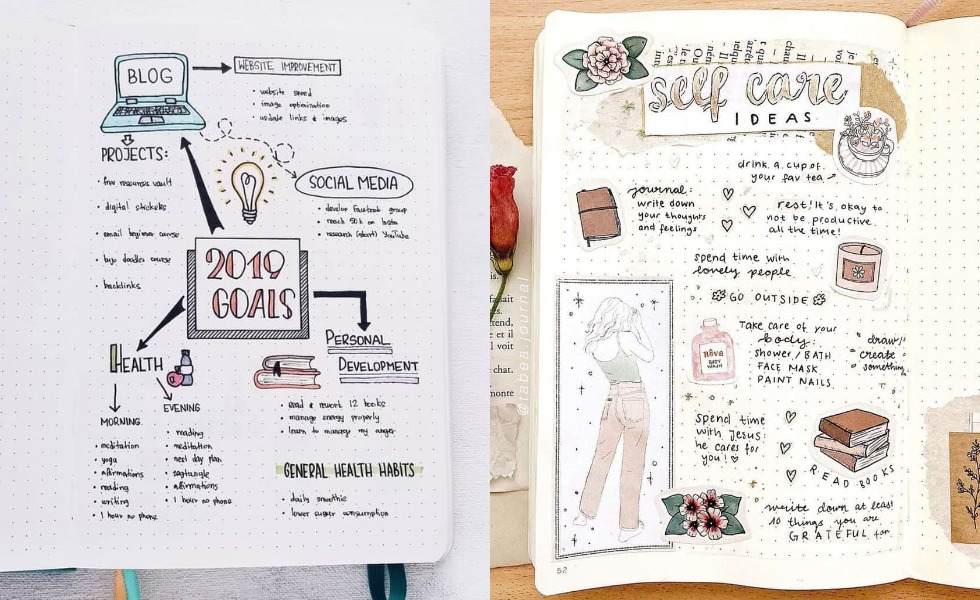 BLOG
WEBSITE IMPROVEMENT
• website speed
• image optimization
• usable links & images
PROJECTS:
• free resources vault
• digital stickers
• email beginner course
• bujo doodles course
• backlinks
SOCIAL MEDIA
• develop Facebook group
• reach 50k on Insta
• research (start) YouTube
2019
GOALS
HEALTH
MORNING
• meditation
• yoga
• affirmations
• reading
• writing
• 1 hour no phone
EVENING
• reading
• meditation
• next day plan
• zentangle
• affirmations
• 1 hour no phone
PERSONAL
DEVELOPMENT
• Read & rework 12 books
• manage energy properly
• learn to manage my anger
GENERAL HEALTH HABITS
• daily smoothie
• lower sugar consumption
self care
IDEAS
drink a cup of
your fav tea
journal:
write down
your thoughts
and feelings
rest! It's okay to
not be productive
all the time!
spend time with
lovely people
GO OUTSIDE
Take care of your
body:
shower / BATH
FACE MASK
PAINT NAILS
rêve
BODY
WASH
draw/
create
something
spend time
with Jesus:
he cares for
you!
READ BOOKS
write down at least
10 things you are
GRATEFUL for
52
@tabea.journal
chat.